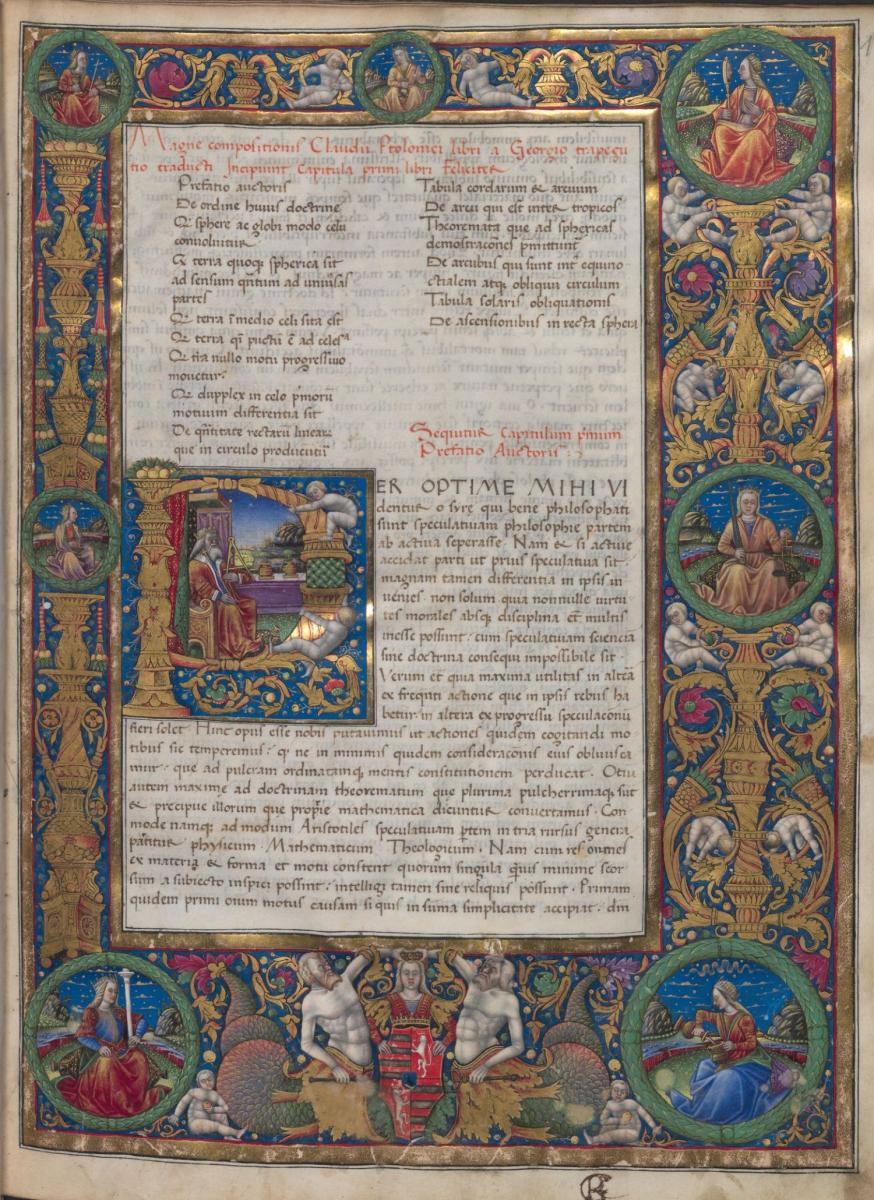 Magne compositionis Claudii Ptolomei libri a Georgio trapezu
tio traducti Incipiunt Capitula primi libri Feliciter
Prefatio auctoris
De ordine huius doctrine
Q sphere ac globi modo celū
conuoluitur
Q terra quoq sphęrica sit
ad sensum q̄ntum ad uniūsas
partes
Q terra ī medio celi sita est
Q terra q̄ pūcti ē ad celes
Q tra nullo motu progressiuo
mouetur
Q dupplex in celo pͥmorū
motuum differentia sit
De q̄titate rectarū linear
que in circulo producūtr
Tabula cordarum & arcuum
De arcu qui est inter tropicos
Theoremata que ad sphericas
demōstracōnes pͥmittunt
De arcubus qui sunt int equino
ctialem atq obliquū circulum
Tabula solaris obliquationis
De ascensionibus in recta sphera
Sequitur Capitulum pͥmum
Prefatio Auctoris
PER OPTIME MIHI VI
dentur o syre qui bene philosophati
sunt speculatiuam philosophie partem
ab actiua seperasse. Nam & si actiue
accidat parti ut prius speculatiua sit
magnam tamen differentia in ipsis in
uenies. non solum quia nonnulle uirtu
tes morales absq disciplina et multis
inesse possint: cum speculatiuam sciencia
sine doctrina consequi impossibile sit
Verum et quia maxima utilitas in altēa
ex freq̄nti actione que in ipsis rebus ha
betur in altera ex progressu speculacōnū
fieri solet. Hinc opus esse nobis putauimus ut actiones quidem cogitandi mo
tibus sic temperemus: q ne in minimis quidem consideracōnis eius obliuisca
mur: que ad pulcram ordinatamq mentis constitutionem perducat. Otiū
autem maxime ad doctrinam theorematum que plurima pulcherrimaq sūt
& precipue illorum que proprie mathematica dicuntur conuertamus. Com
mode namq ad modum Aristotiles speculatiuam ptem in tria rursus genera
partitur physicum. Mathematicum. Theologicum. Nam cum res omnes
ex materia & forma et motu constent quorum singula q̄uis minime seor
sum a subiecto inspici possint: intelligi tamen sine reliquis possunt. Primam
quidem primi oīum motus causam si quis in suma simplicitate accipiat. dm